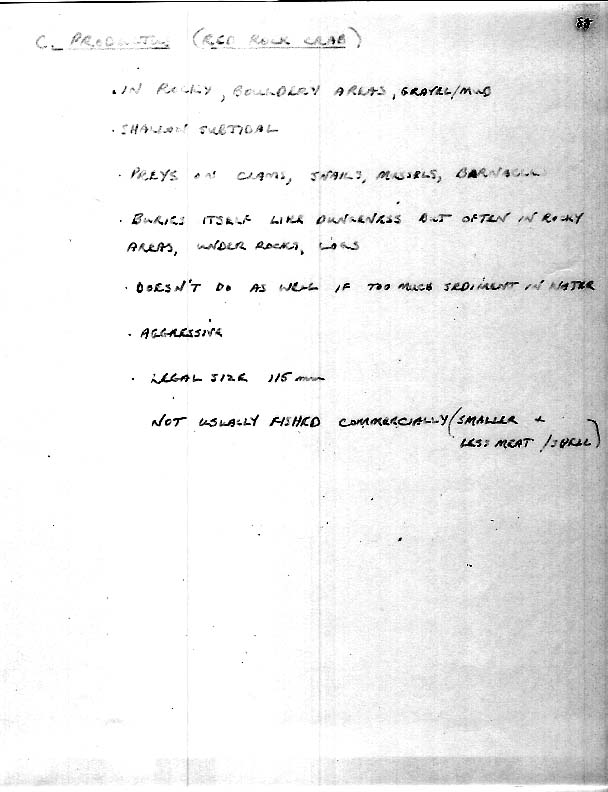 C. PRODUCTUS (RED ROCK CRAB)
· IN ROCKY, BOULDERY AREAS, GRAVEL/MUD
· SHALLOW SUBTIDAL
· PREYS ON CLAMS, SNAILS, MUSSELS, BARNACLE
· BURIES ITSELF LIKE DUNGENESS BUT OFTEN IN ROCKY
AREAS, UNDER ROCKS, LOGS
· DOESN'T DO AS WELL IF TOO MUCH SEDIMENT IN WATER
· AGGRESSIVE
· LEGAL SIZE 115 mm
NOT USUALLY FISHED COMMERCIALLY (SMALLER +
LESS MEAT / SHELL)